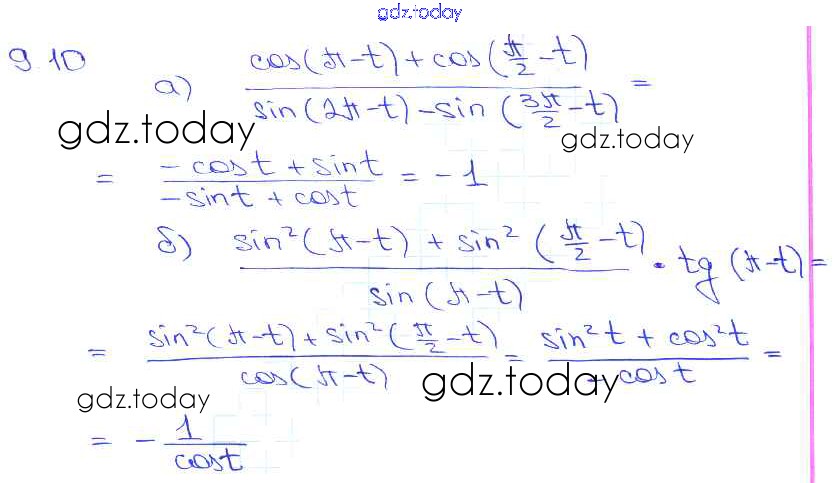 gdz.today
9.10
а) (cos(π-t) + cos(π/2 - t)) / (sin(2π-t) - sin(3π/2 - t)) =
gdz.today gdz.today
= (-cost + sint) / (-sint + cost) = -1
б) (sin²(π-t) + sin²(π/2 - t)) / (sin(π-t)) · tg(π-t) =
= (sin²(π-t) + sin²(π/2 - t)) / (cos(π-t)) = (sin²t + cos²t) / (-cost) =
gdz.today gdz.today
= - 1/cost